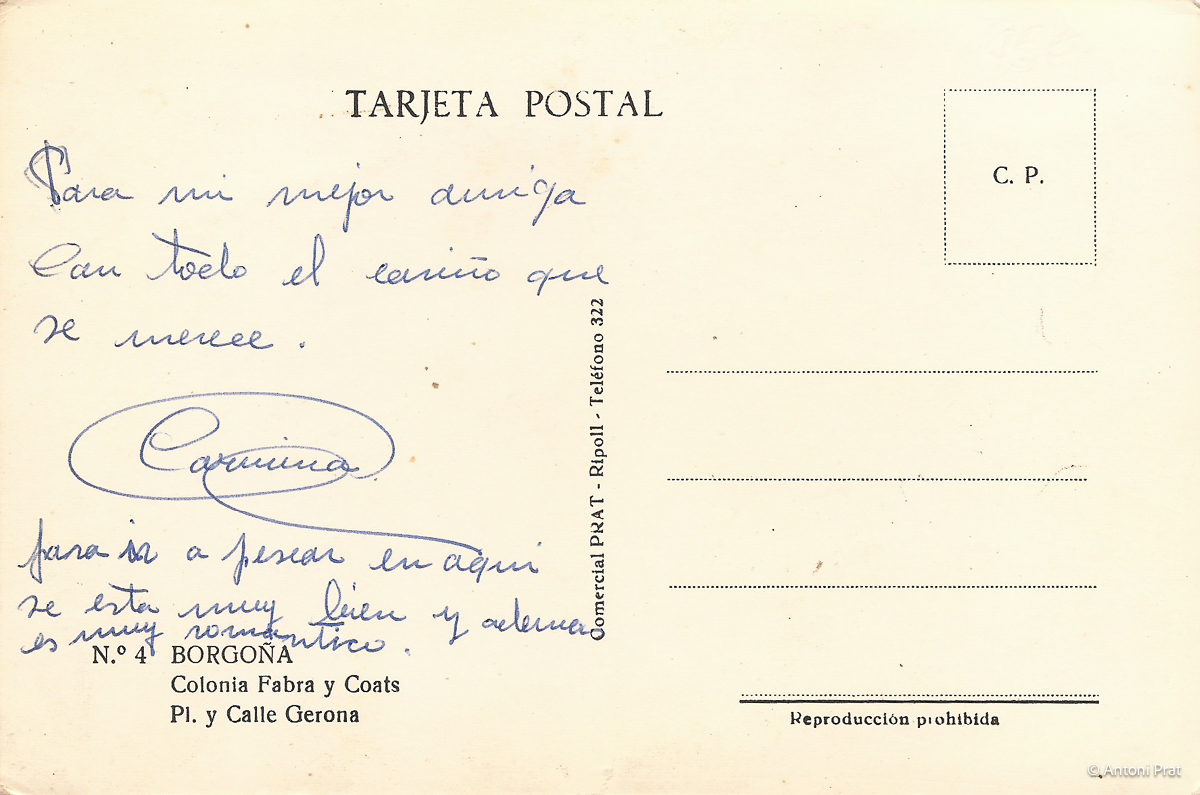 TARJETA POSTAL
C. P.
Para mi mejor amiga
Con todo el cariño que
se merece.
Carmina
para ir a pescar en aqui
se esta muy bien y ademas
es muy romantico.
Comercial PRAT - Ripoll - Teléfono 322
N.º 4 BORGOÑA
Colonia Fabra y Coats
Pl. y Calle Gerona
Reproducción prohibida
© Antoni Prat